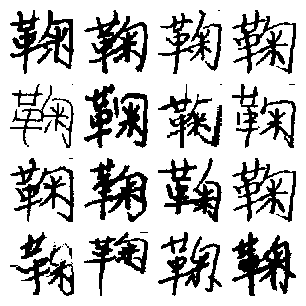 鞠鞠鞠鞠
鞠鞠鞠鞠
鞠鞠鞠鞠
鞠鞠鞠鞠